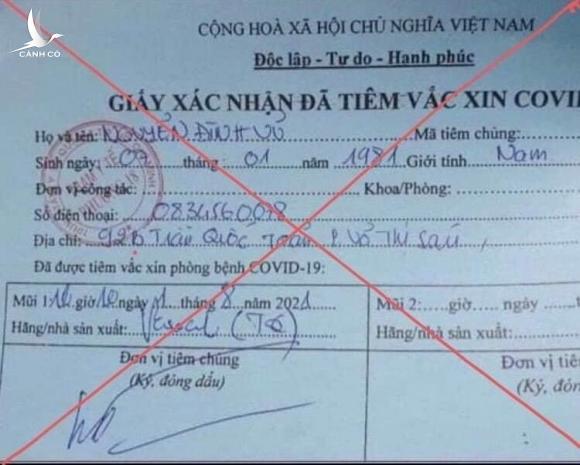 CÁNH CÒ
CỘNG HOÀ XÃ HỘI CHỦ NGHĨA VIỆT NAM
Độc lập - Tự do - Hạnh phúc
GIẤY XÁC NHẬN ĐÃ TIÊM VẮC XIN COVI
Họ và tên: NGUYỄN ĐÌNH VŨ Mã tiêm chủng:
Sinh ngày: 07 tháng: 01 năm 1981 Giới tính Nam
Đơn vị công tác: Khoa/Phòng:
Số điện thoại: 0834560078
Địa chỉ: 92B Trần Quốc Toản P. Võ Thị Sáu,
Đã được tiêm vắc xin phòng bệnh COVID-19:
Mũi 1: 10 giờ 10 ngày 1 tháng 8 năm 2021 Mũi 2: giờ ngày
Hãng/nhà sản xuất: Hãng/nhà sản xuất:
Đơn vị tiêm chủng Đơn vị tiê
(Ký, đóng dấu) (Ký, đón